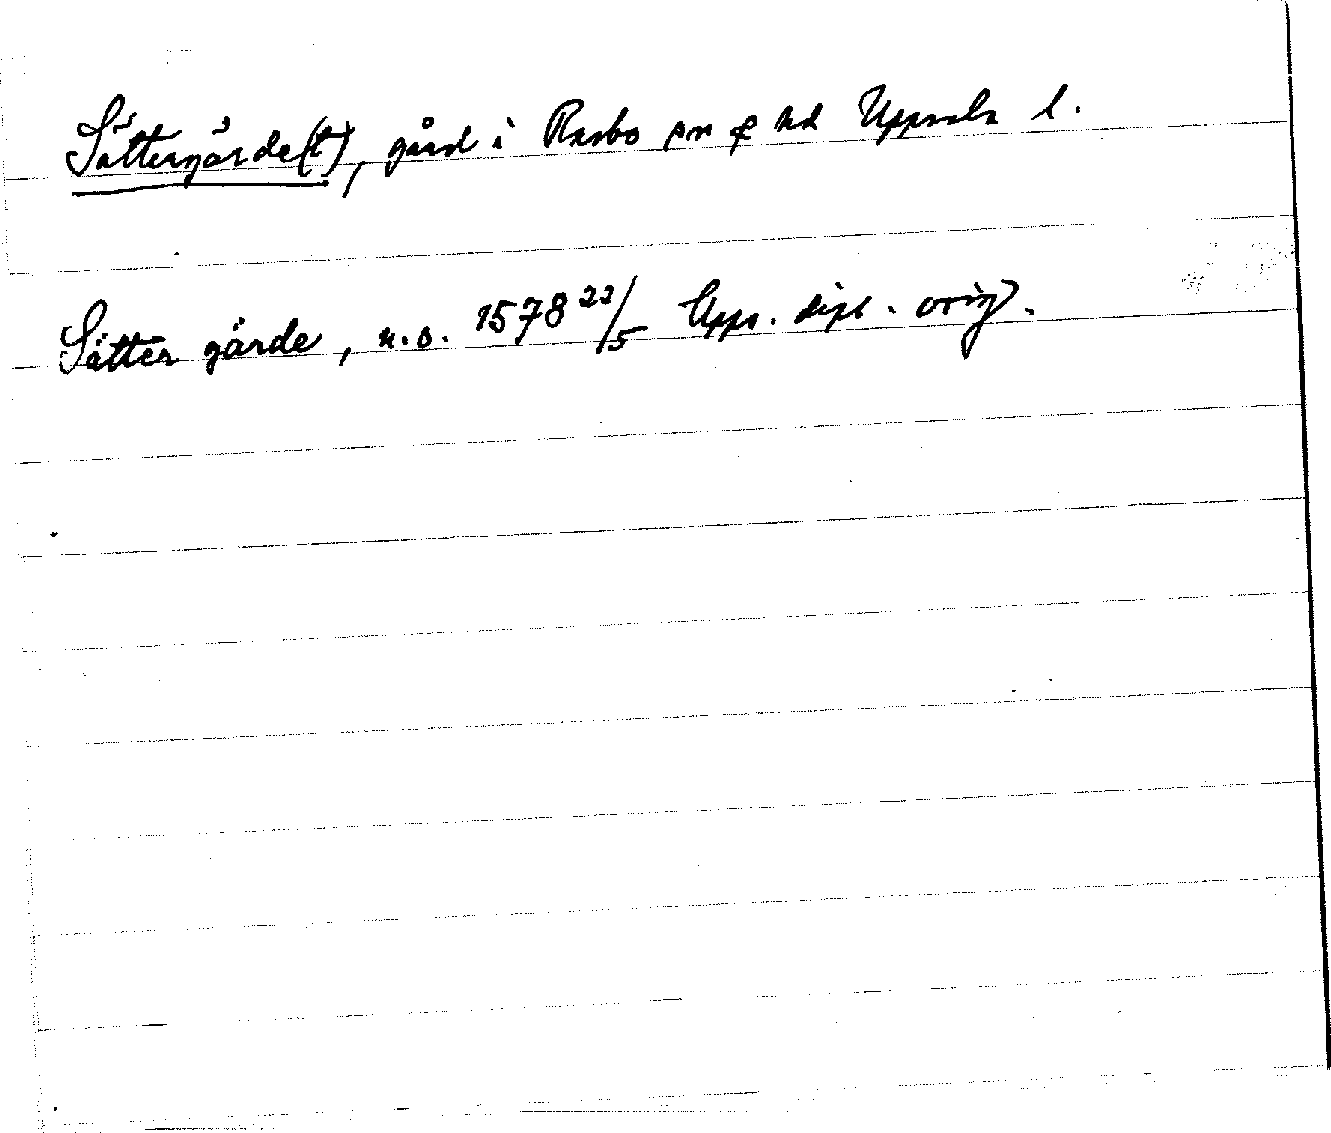 Sättergärde(t), gård i Rasbo sn & hd Uppsala l.
Sätter gärde, n.o. 1578 22/5 Upps. dipl. orig.